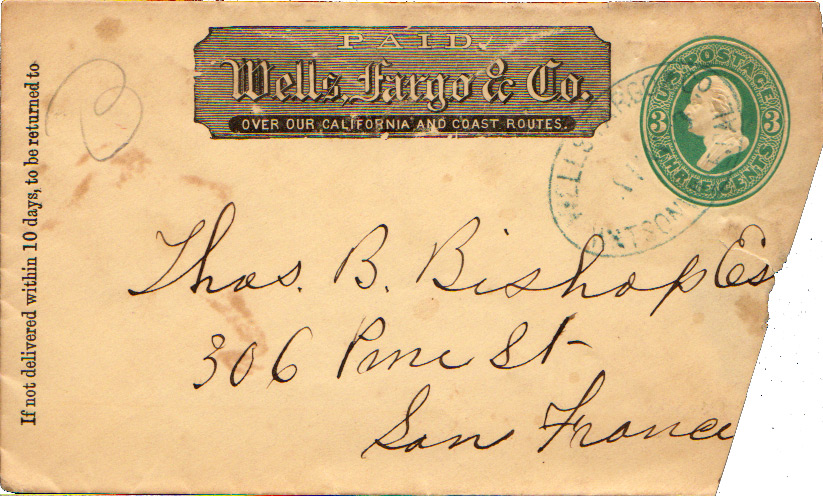 PAID
Wells, Fargo & Co.
OVER OUR CALIFORNIA AND COAST ROUTES.
U.S. POSTAGE
3 3
THREE CENTS
WELLS FARGO
If not delivered within 10 days, to be returned to
Thos. B. Bishop Es
306 Pine St
San Franci